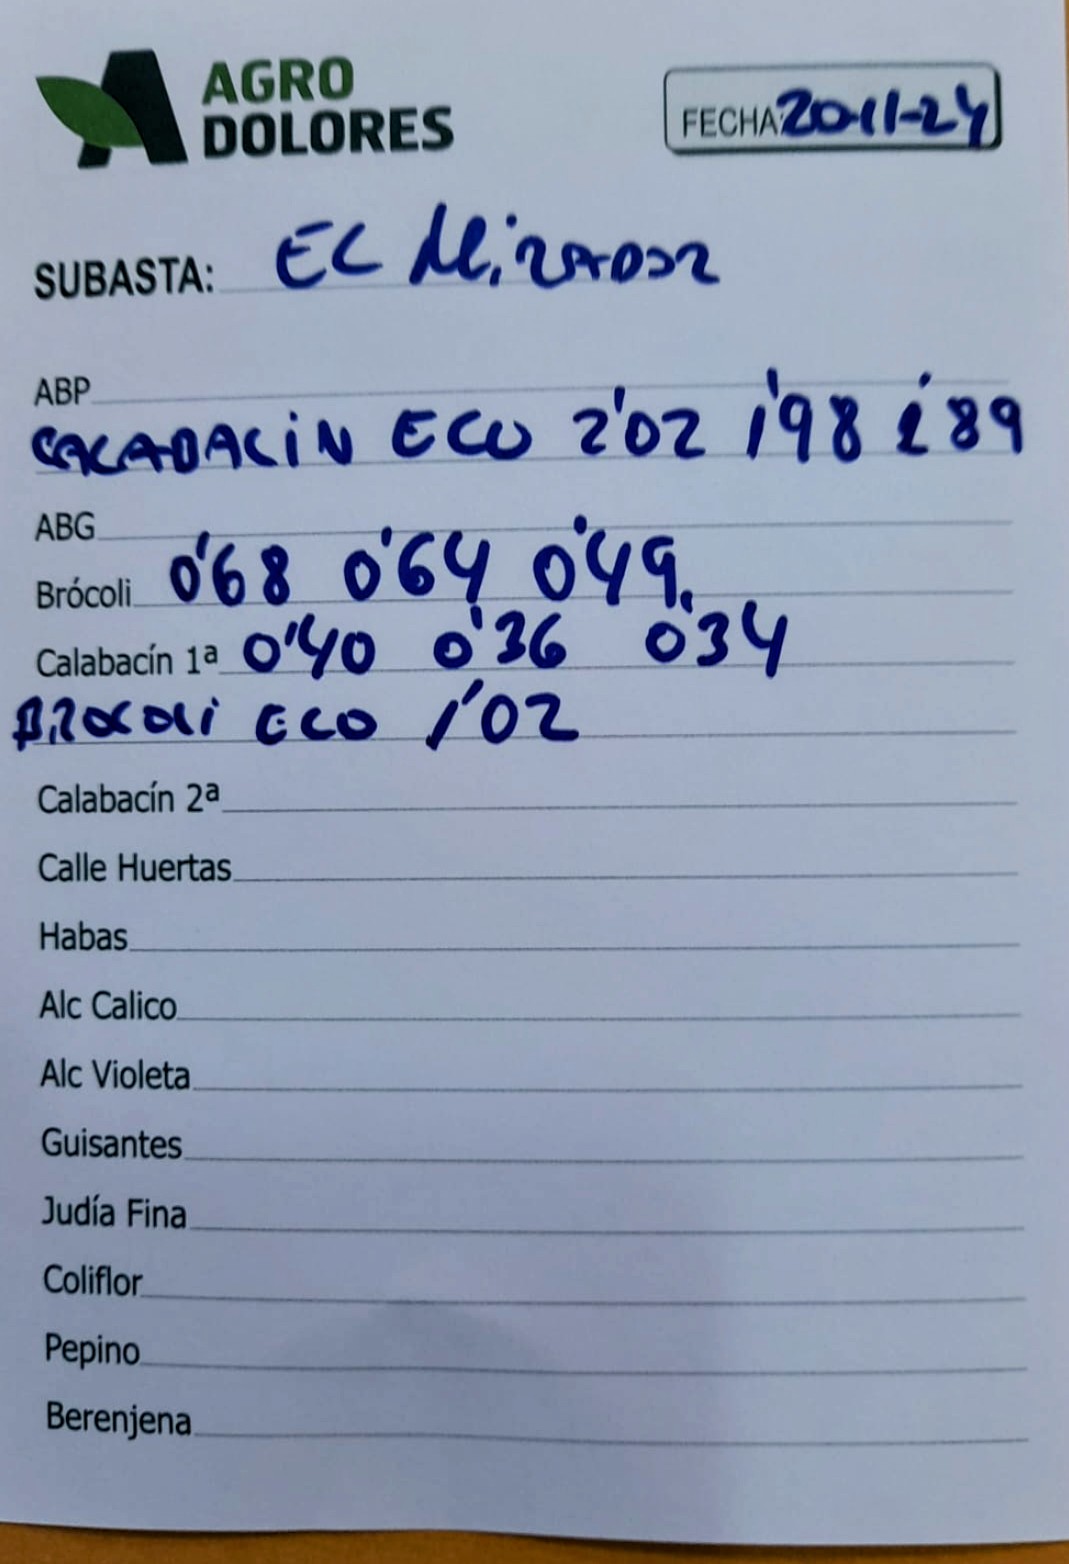 AGRO
DOLORES
FECHA: 20-11-24
SUBASTA: EL MiRADOR
ABP
CALABACiN ECO 2'02 1'98 1'89
ABG
Brócoli 0'68 0'64 0'49.
Calabacín 1ª 0'40 0'36 0'34
BROCOLi ECO 1'02
Calabacín 2ª
Calle Huertas
Habas
Alc Calico
Alc Violeta
Guisantes
Judía Fina
Coliflor
Pepino
Berenjena